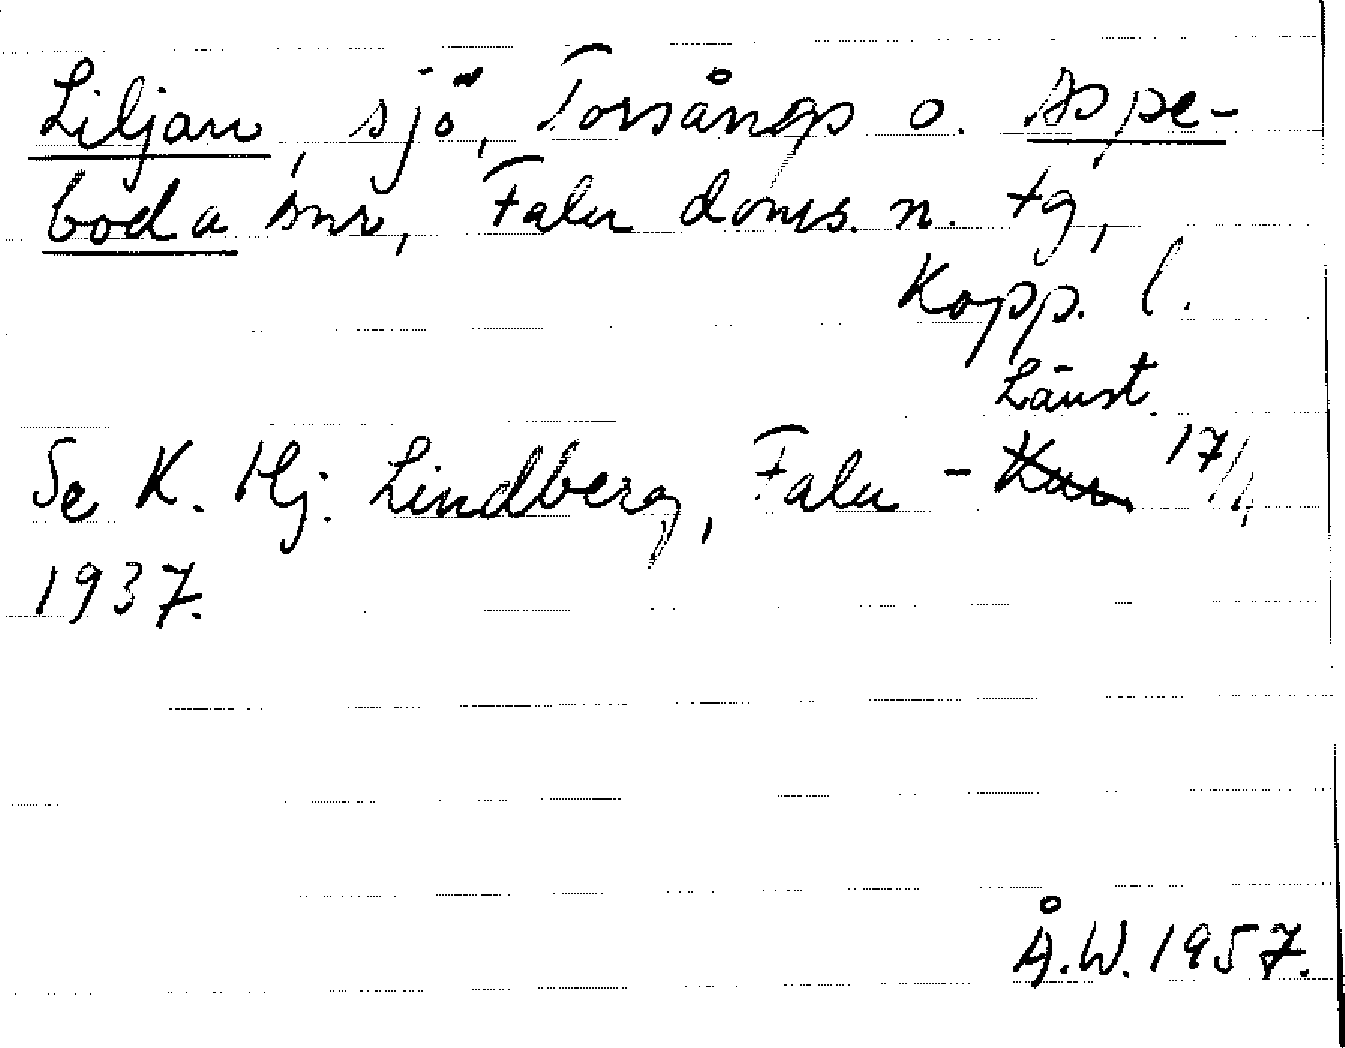 Liljan, sjö, Torsångs o. Aspe-
boda snr, Falu doms. n. tg,
Kopp. l.
Länst.
Se K. Hj. Lindberg, Falu - Kur 17/4
1937.
Å.W. 1957.